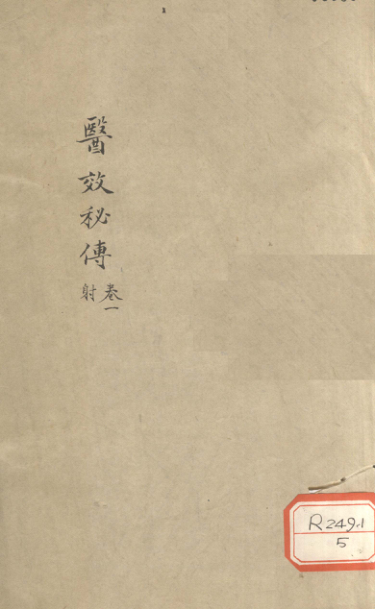 醫效秘傳
卷一
射
R249.1
5